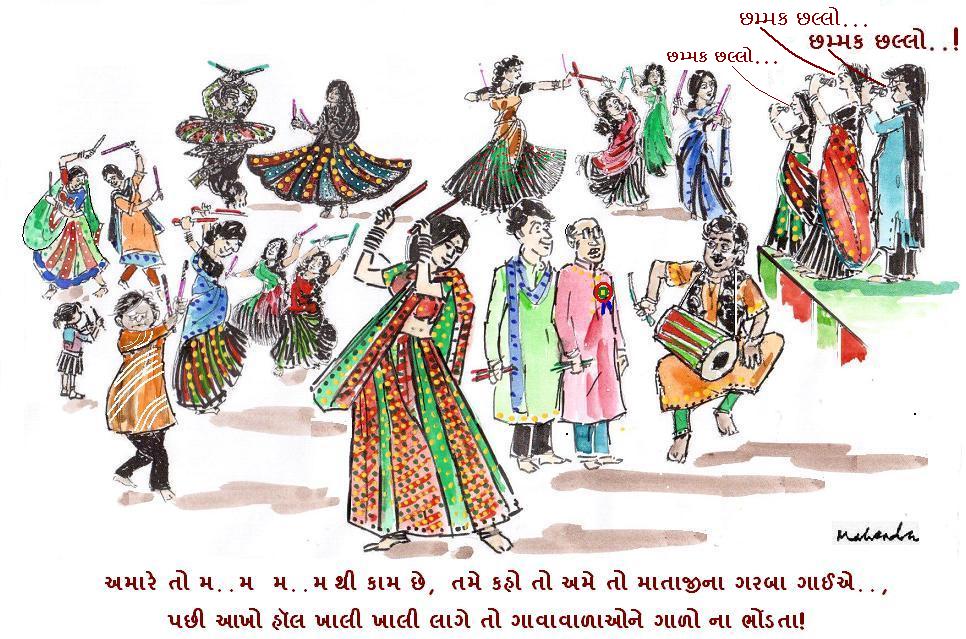 છમ્મક છલ્લો...
છમ્મક છલ્લો..!
છમ્મક છલ્લો...
Mahendra
અમારે તો મ..મ મ..મ થી કામ છે, તમે કહો તો અમે તો માતાજીના ગરબા ગાઈએ..,
પછી આખો હૉલ ખાલી ખાલી લાગે તો ગાવાવાળાઓને ગાળો ના ભોંડતા!